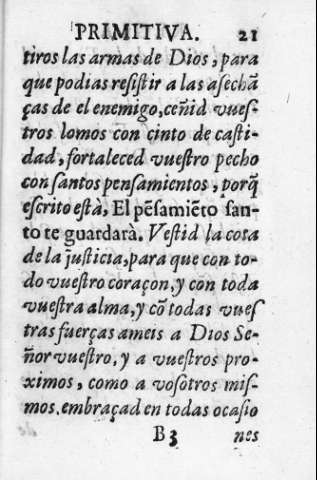 PRIMITIVA. 21
tiros las armas de Dios, para
que podias resistir a las asechã
ças de el enemigo, ceñid vues-
tros lomos con cinto de casti-
dad, fortaleced vuestro pecho
con santos pensamientos, porq̃
escrito està, El pẽsamiẽto san-
to te guardarà. Vestid la cota
de la justicia, para que con to-
do vuestro coraçon, y con toda
vuestra alma, y cõ todas vues
tras fuerças ameis a Dios Se-
ñor vuestro, y a vuestros pro-
ximos, como a vosotros mis-
mos. embraçad en todas ocasio
B3 nes